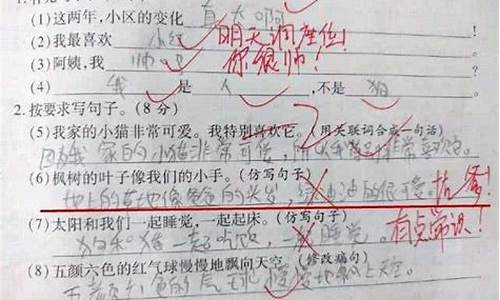 (1)这两年,小区的变化 真大啊
(2)我最喜欢 小红 明天调座位!
(3)阿姨,我 帅吧 你很帅!
(4) 我 是 人 ,不是 狗
2. 按要求写句子。(8 分)
(5)我家的小猫非常可爱。我特别喜欢它。(用关联词合成一句话)
因为我家的小猫非常可爱,所以我 非常喜欢它。
(6)枫树的叶子像我们的小手。(仿写句子)
地上的草地像爸爸的头发,绿油油的很可爱。
(7)太阳和我们一起睡觉,一起起床。(仿写句子)
狗和猪一起吃饭,一起睡觉。 有点常识!
(8)五颜六色的红气球慢慢地飘向天空。(修改病句)
五颜六色的气球慢慢地飘上天空。